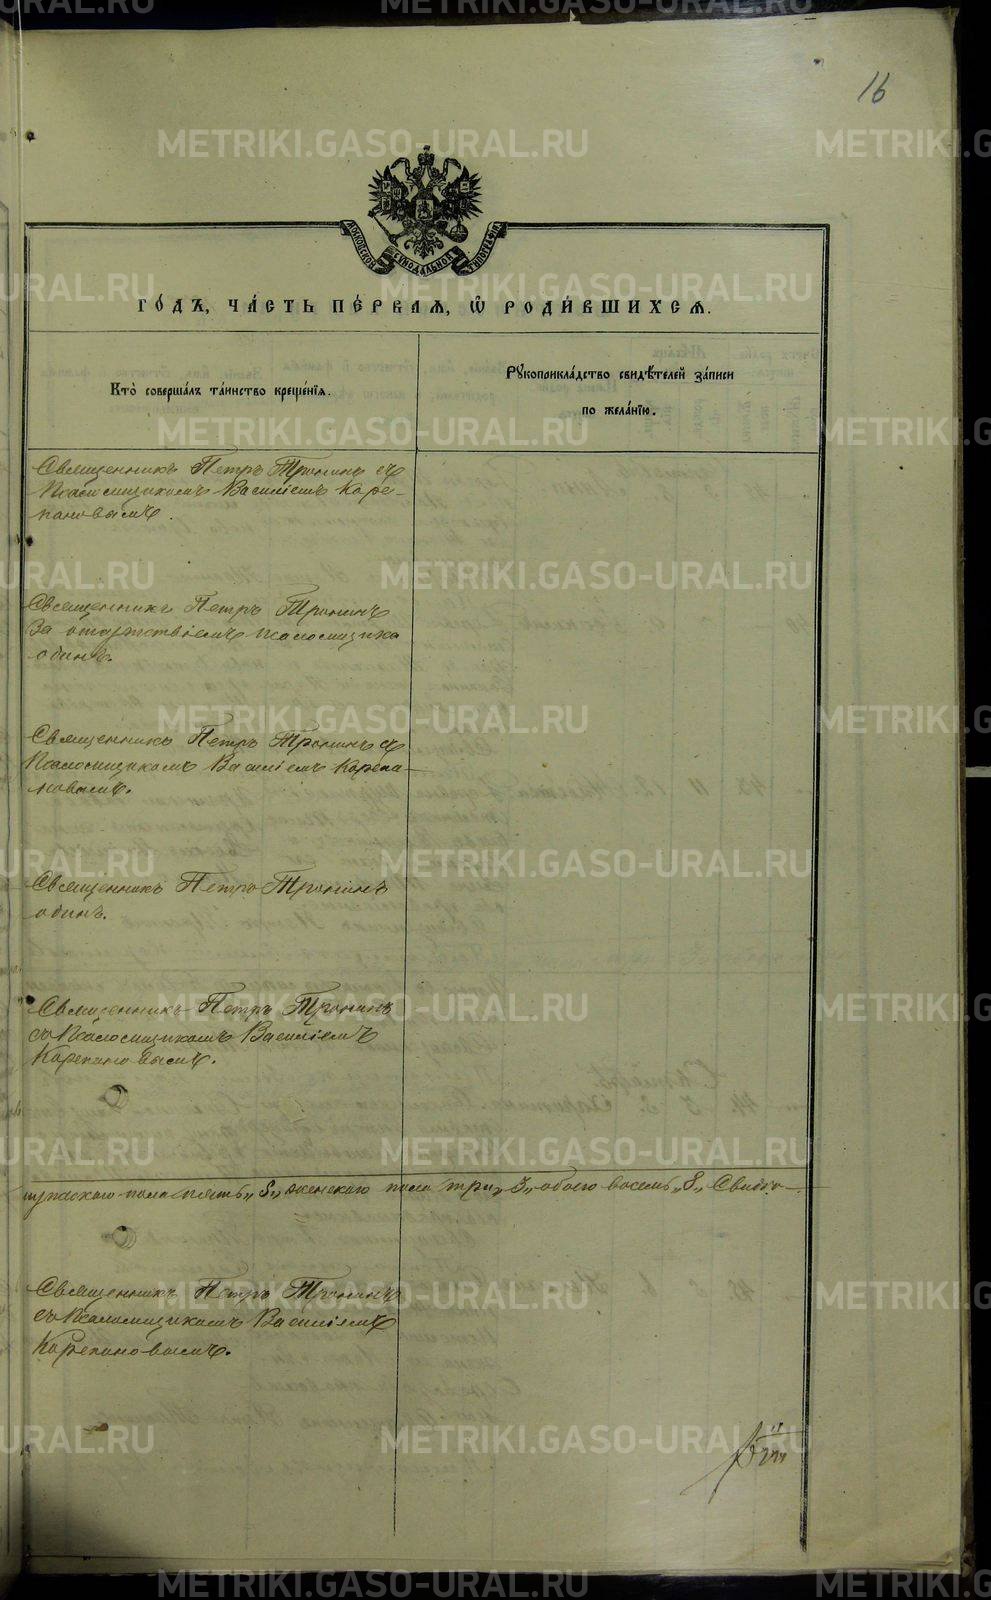 16
МОСКОВСКОЙ СѴНОДАЛЬНОЙ ТИПОГРАФІИ
ГО́ДЪ, ЧА́СТЬ ПЕ́РВАЯ, Ѡ҆ РОДИ́ВШИХСЯ.
Кто̀ соверша́лъ та́инство креще́нїѧ.
Рꙋкоприкла́дство свидѣ́телей за́писи
по жела́нїю.
Священникъ Петръ Тронинъ съ
Псаломщикомъ Василіемъ Коре-
пановымъ.
Священникъ Петръ Тронинъ
За отсутствіемъ псаломщика
одинъ.
Священникъ Петръ Тронинъ съ
Псаломщикомъ Василіемъ Корепа-
новымъ.
Священникъ Петръ Тронинъ
одинъ.
Священникъ Петръ Тронинъ
съ Псаломщикомъ Василіемъ
Корепановымъ.
мужскаго пола пять „5„ женскаго пола три „3„ обоего восемь „8„
Священникъ Петръ Тронинъ
съ Псаломщикомъ Василіемъ
Корепановымъ.
METRIKI.GASO-URAL.RU